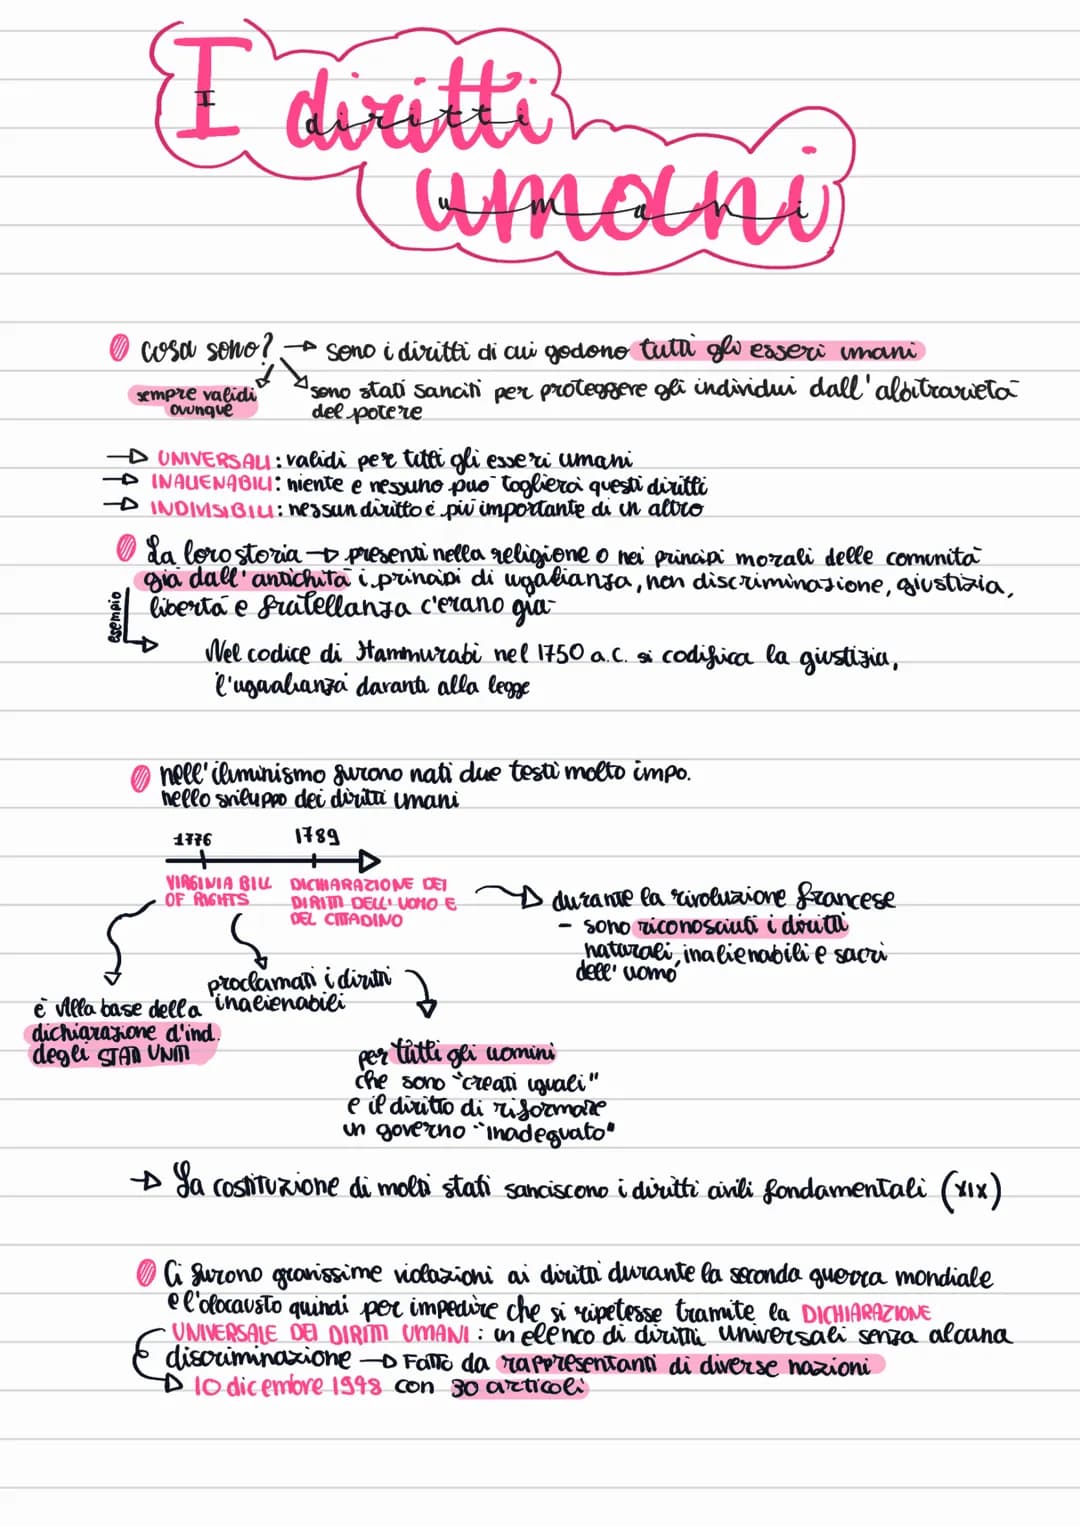 I diritti
umani
cosa sono? → sono i diritti di cui godono tutti gli esseri umani
sempre validi
ovunque
sono stati sanciti per proteggere gli individui dall'albitrarietà
del potere
→ UNIVERSALI: validi per tutti gli esseri umani
→ INALIENABILI: niente e nessuno può toglierci questi diritti
→ INDIVISIBILI: nessun diritto è più importante di un altro
La loro storia → presenti nella religione o nei principi morali delle comunità
già dall'antichità i principi di ugalianza, non discriminazione, giustizia,
libertà e fratellanza c'erano già
esempio
Nel codice di Hammurabi nel 1750 a.C. si codifica la giustizia,
l'ugualianza davanti alla legge
nell'iluminismo furono nati due testi molto impo.
nello sviluppo dei diritti umani
1776 1789
VIRGINIA BILL
OF RIGHTS
DICHIARAZIONE DEI
DIRITTI DELL'UOMO E
DEL CITTADINO
→ durante la rivoluzione francese
- sono riconosciuti i diritti
naturali, inalienabili e sacri
dell'uomo
proclamati i diritti
inalienabili
è alla base della
dichiarazione d'ind.
degli STATI UNITI
per tutti gli uomini
che sono "creati uguali"
e il diritto di riformare
un governo "inadeguato"
→ La costituzione di molti stati sanciscono i diritti civili fondamentali (XIX)
Ci furono gravissime violazioni ai diritti durante la seconda guerra mondiale
e l'olocausto quindi per impedire che si ripetesse tramite la DICHIARAZIONE
UNIVERSALE DEI DIRITTI UMANI: un elenco di diritti universali senza alcuna
discriminazione → Fatto da rappresentanti di diverse nazioni
→ 10 dicembre 1948 con 30 articoli